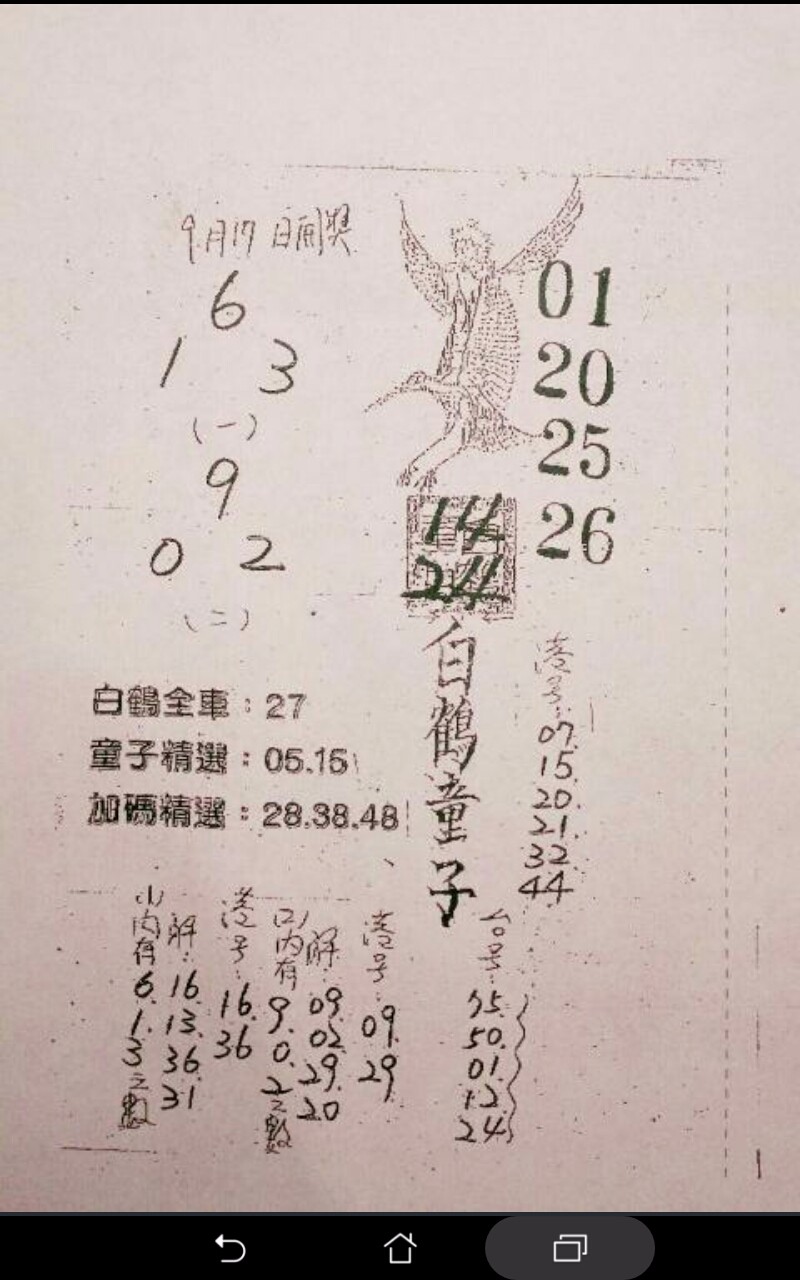 9月17日開獎
6
1 3
(一)
9
0 2
(二)
01
20
25
26
14
24
白鶴童子
港号:
07.
15.
20.
21.
32.
44
白鶴全車:27
童子精選:05.15
加碼精選:28.38.48
(1)內有6.1.3之數
解:16.13.36.31
港号:16.36
(2)內有9.0.2之數
解:09.02.29.20
港号:09.29
台号:
75.
50.
01.
12.
24